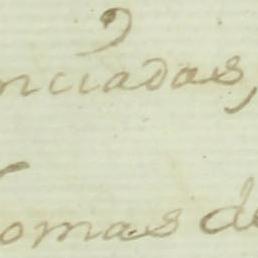 nciadas,
omas de